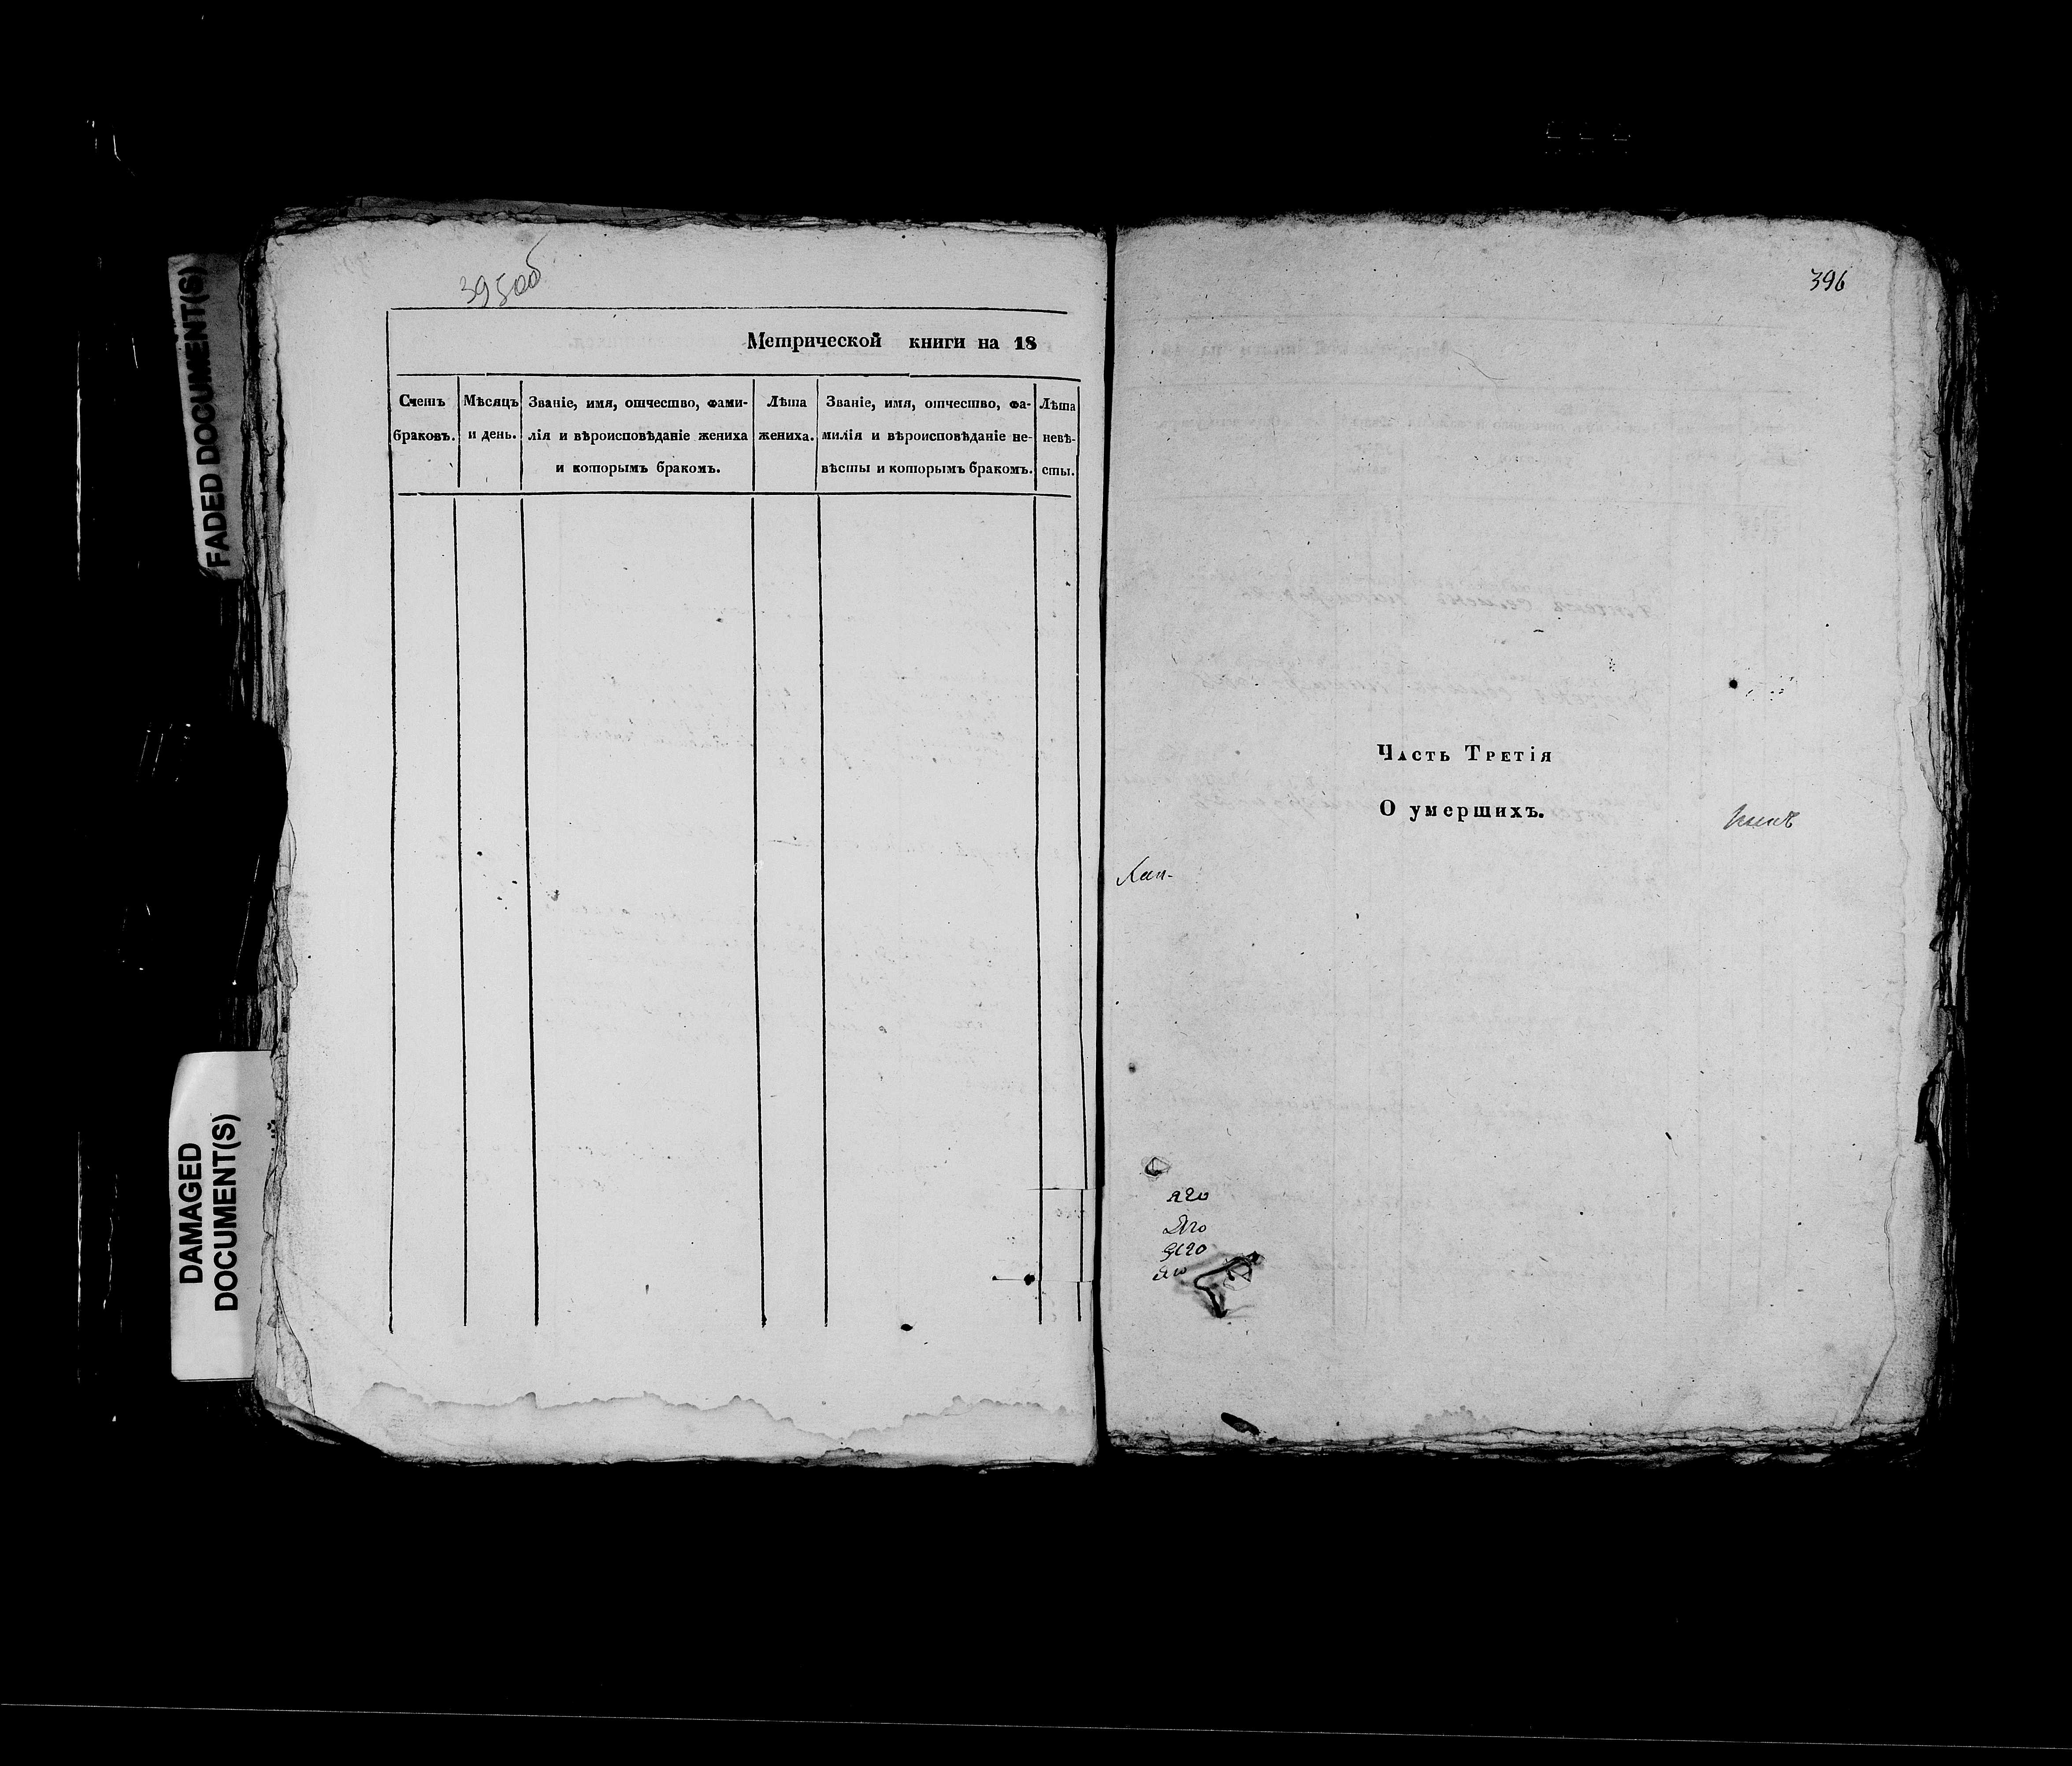 FADED DOCUMENT(S)
DAMAGED
DOCUMENT(S)
395об
Метрической книги на 18
Счетъ
браковъ.
Мѣсяцъ
и день.
Званіе, имя, отчество, фами-
лія и вѣроисповѣданіе жениха
и которымъ бракомъ.
Лѣта
жениха.
Званіе, имя, отчество, фа-
милія и вѣроисповѣданіе не-
вѣсты и которымъ бракомъ.
Лѣта
невѣ-
сты.
396
Часть Третія
О умершихъ.